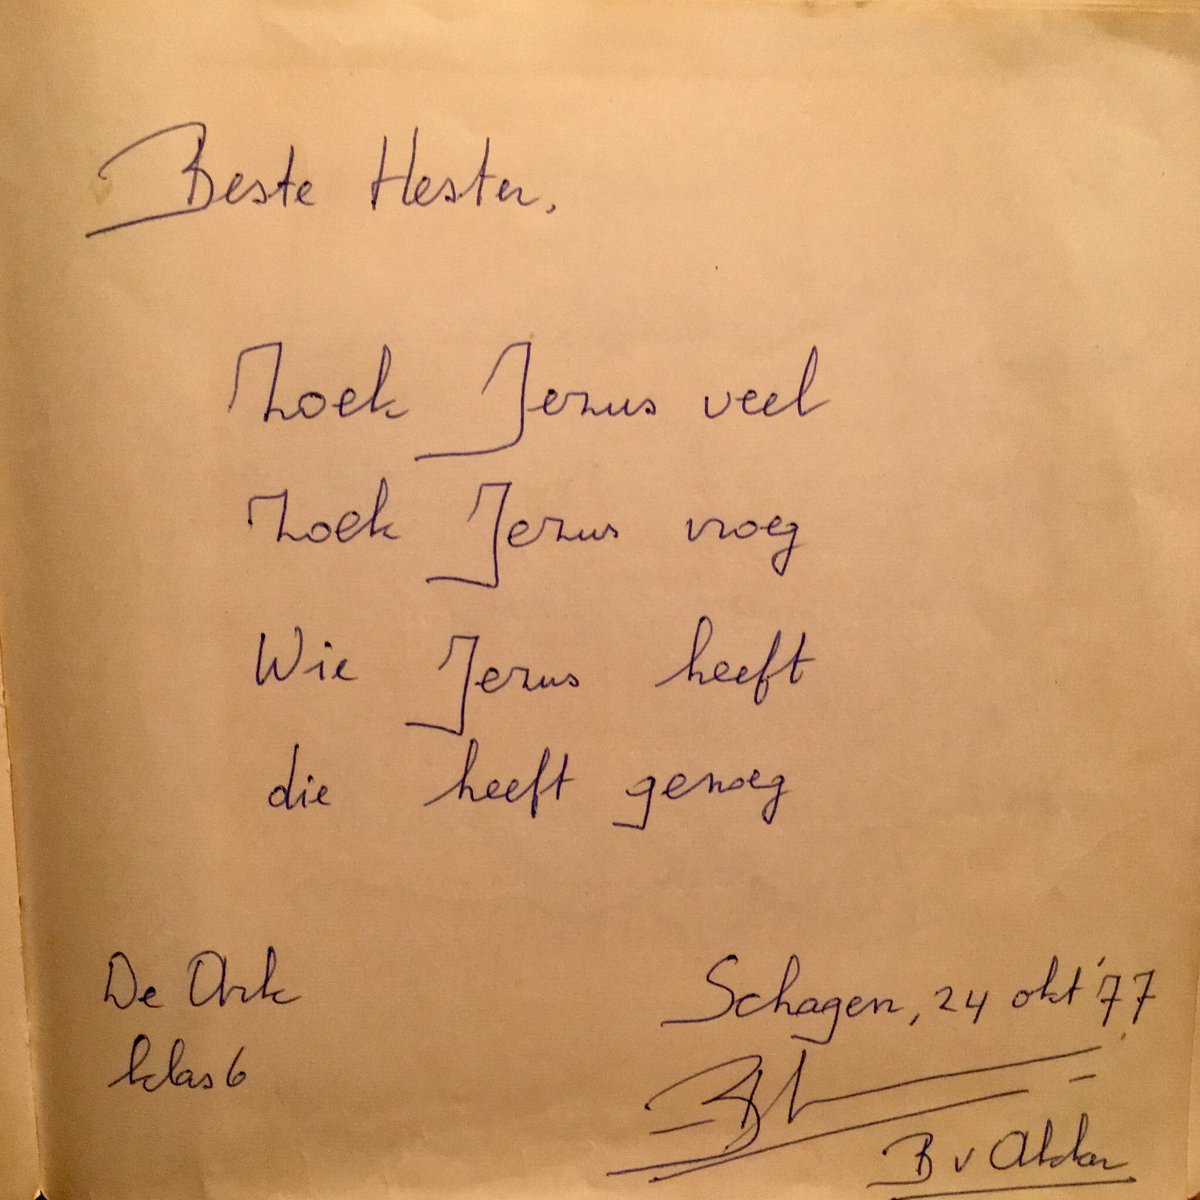 Beste Hester,
Zoek Jezus veel
Zoek Jezus vroeg
Wie Jezus heeft
die heeft genoeg
De Ark
klas 6
Schagen, 24 okt '77
B v